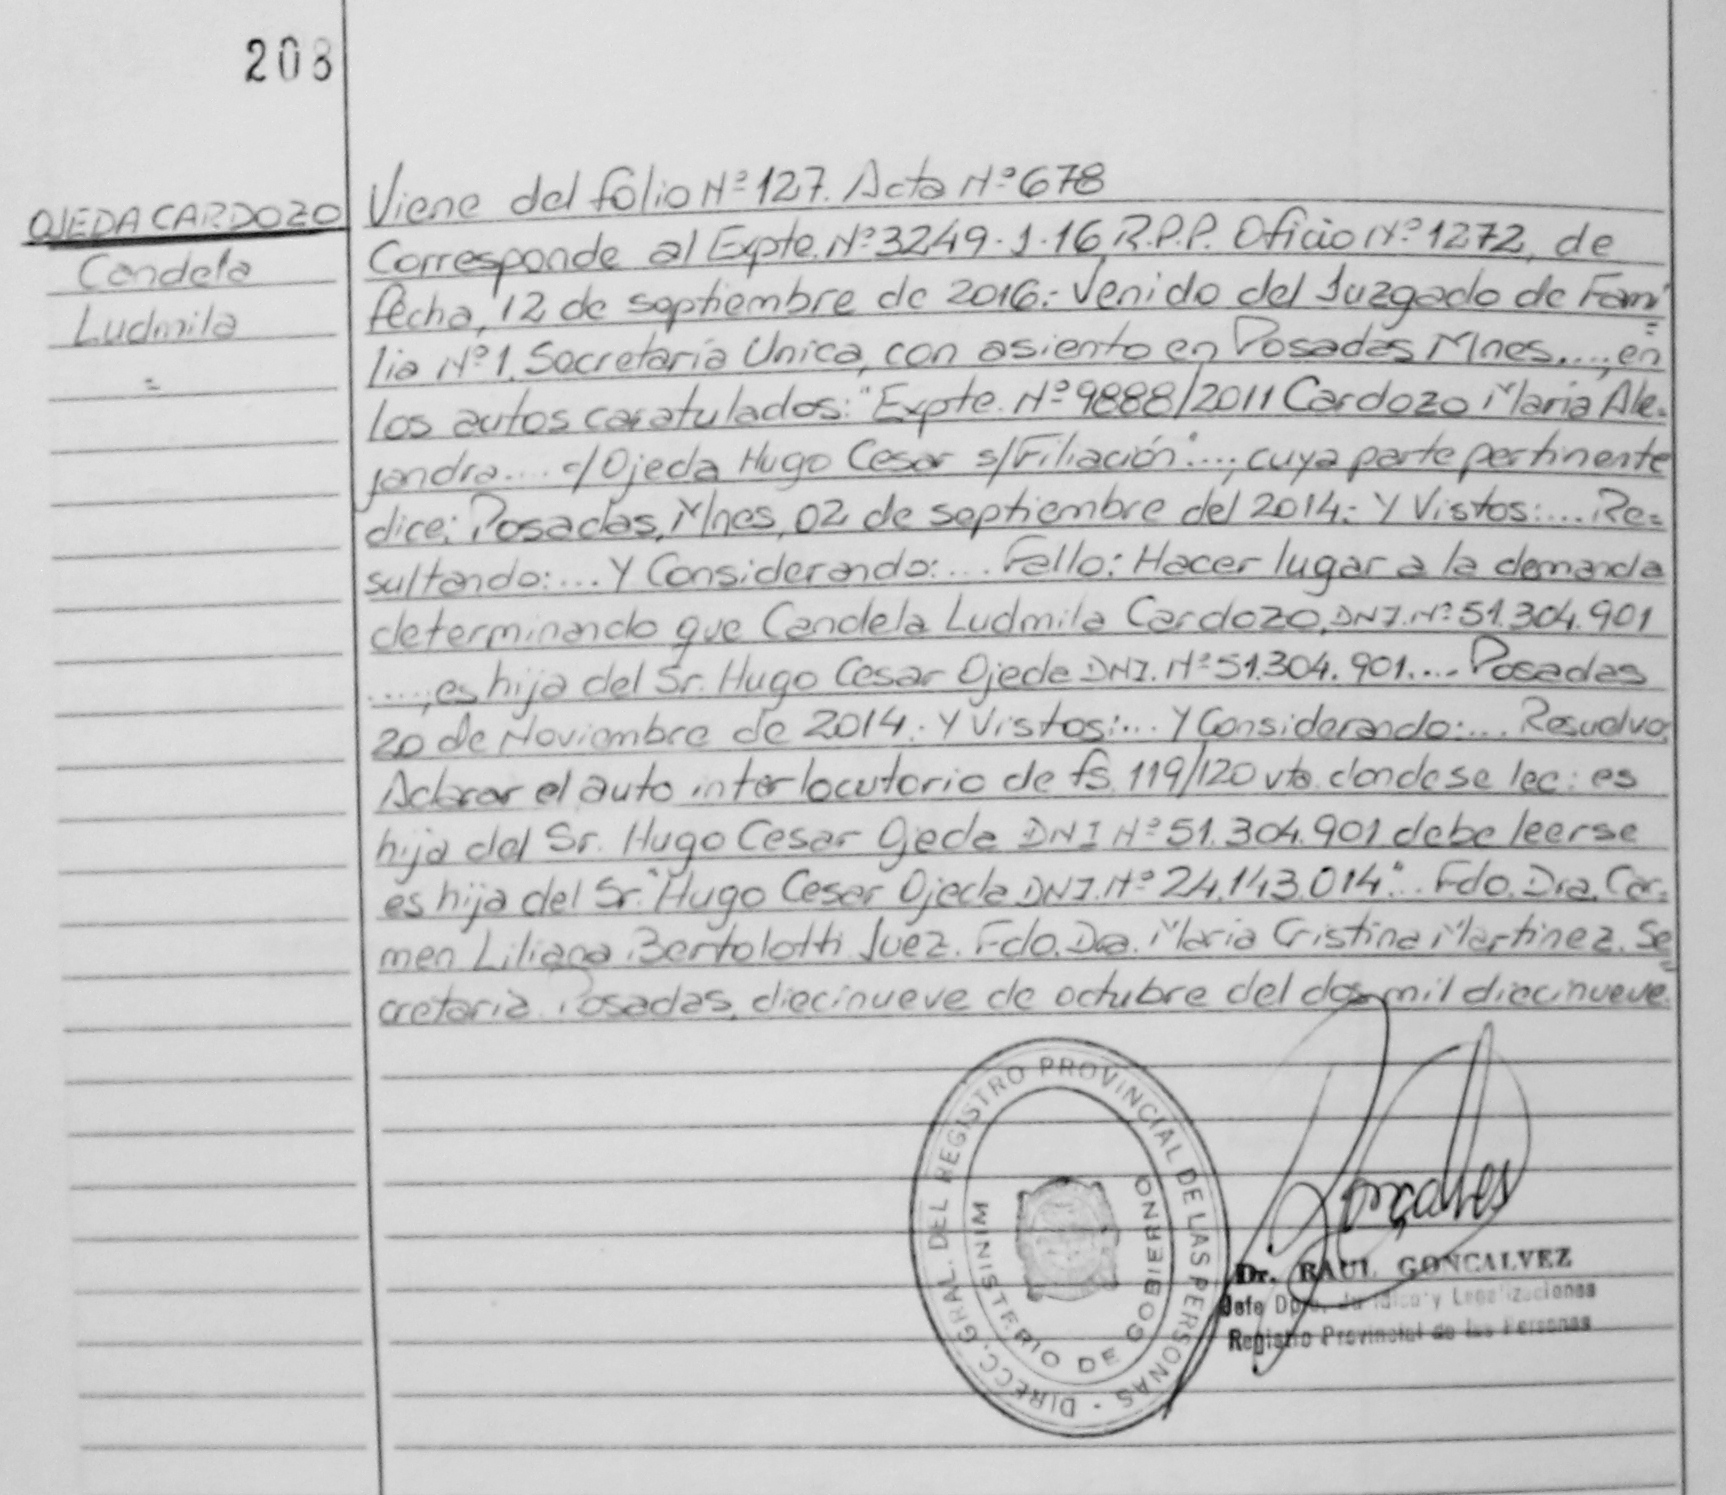 208
OJEDA CARDOZO
Candela
Ludmila
=
Viene del folio Nº 127. Acta Nº 678
Corresponde al Expte. Nº 3249-J-16 R.P.P. Oficio Nº 1272, de
fecha, 12 de septiembre de 2016.- Venido del Juzgado de Fami=
lia Nº 1. Secretaría Unica, con asiento en Posadas Mnes...., en
los autos caratulados: "Expte. Nº 9888/2011 Cardozo María Ale=
jandra.... c/Ojeda Hugo Cesar s/Filiación"...., cuya parte pertinente
dice: Posadas, Mnes, 02 de septiembre del 2014.- Y Vistos:.... Re=
sultando:.... Y Considerando:.... Fallo: Hacer lugar a la demanda
determinando que Candela Ludmila Cardozo, DNI. Nº 51.304.901
....., es hija del Sr. Hugo Cesar Ojeda DNI. Nº 51.304.901.... Posadas
20 de Noviembre de 2014.- Y Vistos:.... Y Considerando:.... Resuelvo:
Aclarar el auto interlocutorio de fs. 119/120 vta. donde se lee: es
hija del Sr. Hugo Cesar Ojeda DNI Nº 51.304.901 debe leerse
es hija del Sr. "Hugo Cesar Ojeda DNI. Nº 24.143.014".. Fdo. Dra. Car=
men Liliana Bertolotti Juez. Fdo. Dra. María Cristina Martinez. Se=
cretaria. Posadas, diecinueve de octubre del dos mil diecinueve.
DIRECC. GRAL. DEL REGISTRO PROVINCIAL DE LAS PERSONAS -
MINISTERIO DE GOBIERNO
Gonçalves
Dr. RAUL GONCALVEZ
Jefe Dpto. Jurídico y Legalizaciones
Registro Provincial de las Personas